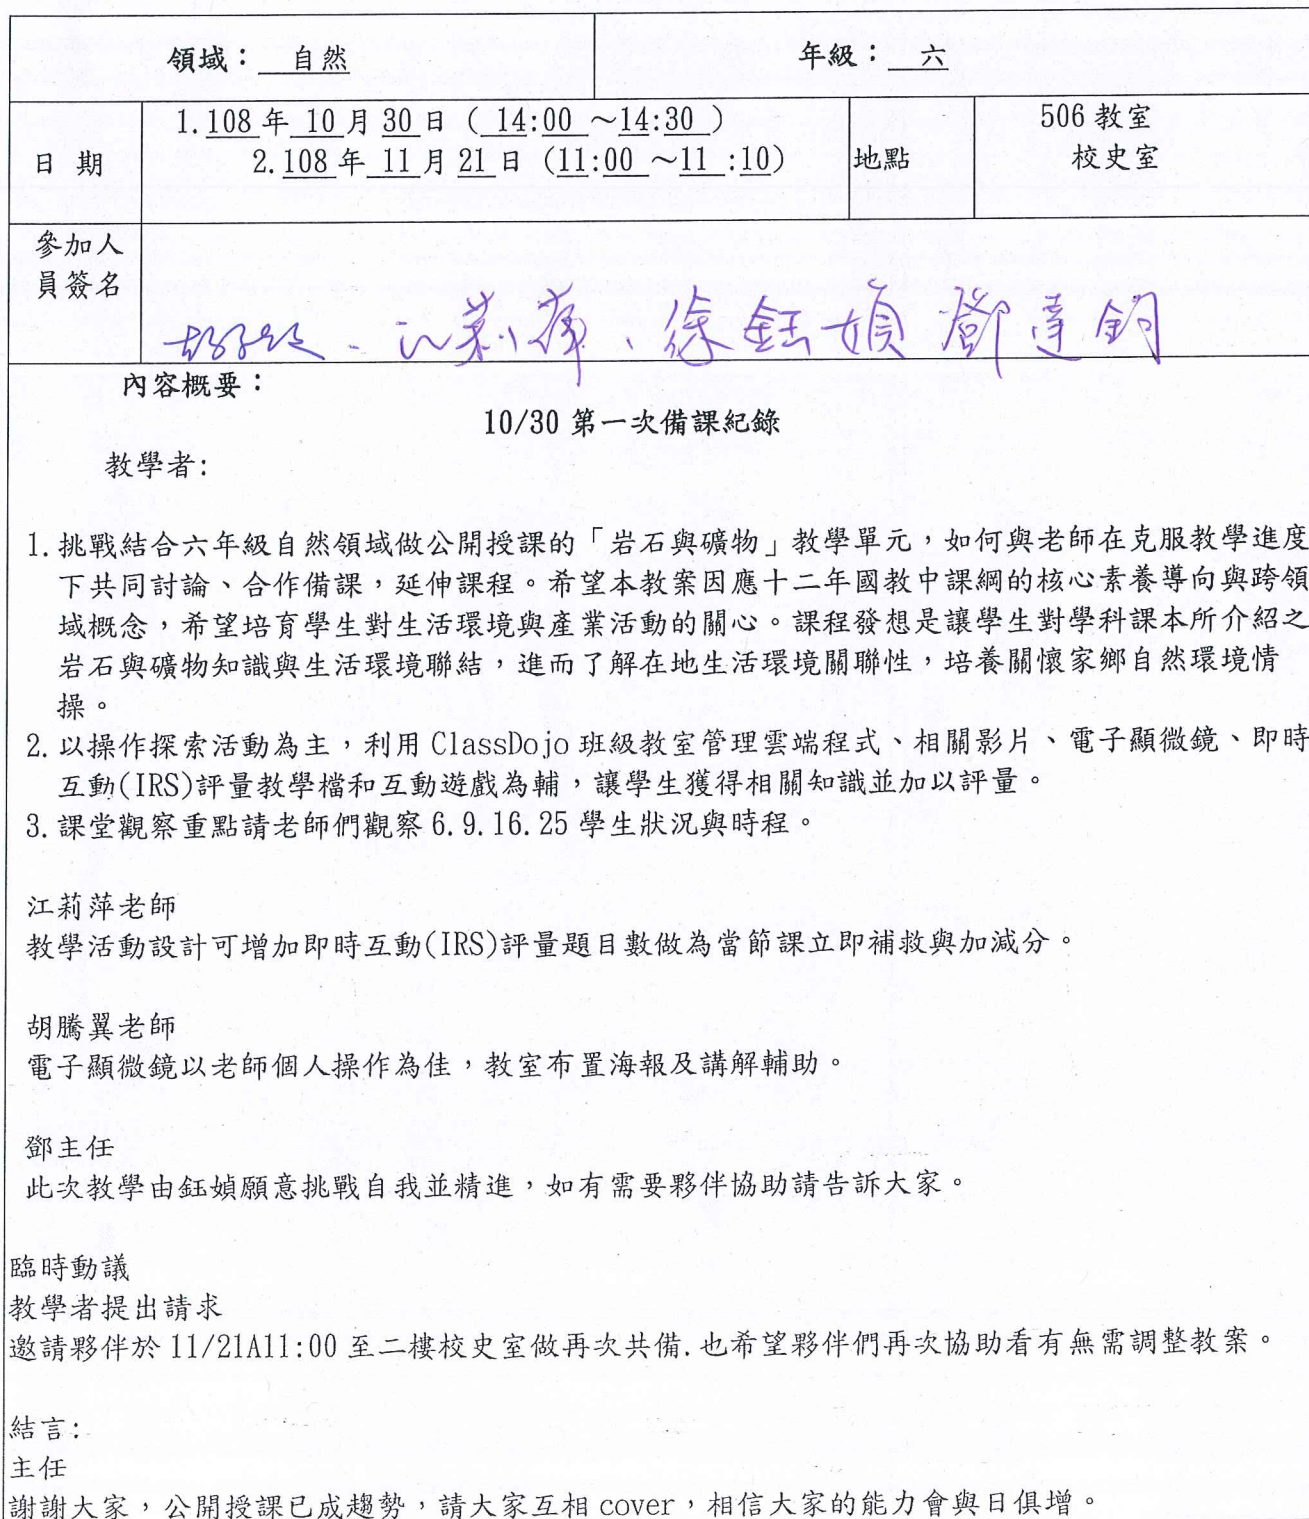 領域： 自然 年級： 六
日 期 1.108 年 10 月 30 日 ( 14:00 ～14:30 ) 地點 506 教室
2.108 年 11 月 21 日 (11:00 ～11 :10) 校史室
參加人
員簽名
胡騰翼、江莉萍、徐鈺媜 鄧達鈞
內容概要：
10/30 第一次備課紀錄
教學者:
1.挑戰結合六年級自然領域做公開授課的「岩石與礦物」教學單元，如何與老師在克服教學進度
下共同討論、合作備課，延伸課程。希望本教案因應十二年國教中課綱的核心素養導向與跨領
域概念，希望培育學生對生活環境與產業活動的關心。課程發想是讓學生對學科課本所介紹之
岩石與礦物知識與生活環境聯結，進而了解在地生活環境關聯性，培養關懷家鄉自然環境情
操。
2.以操作探索活動為主，利用 ClassDojo 班級教室管理雲端程式、相關影片、電子顯微鏡、即時
互動(IRS)評量教學檔和互動遊戲為輔，讓學生獲得相關知識並加以評量。
3.課堂觀察重點請老師們觀察 6.9.16.25 學生狀況與時程。
江莉萍老師
教學活動設計可增加即時互動(IRS)評量題目數做為當節課立即補救與加減分。
胡騰翼老師
電子顯微鏡以老師個人操作為佳，教室布置海報及講解輔助。
鄧主任
此次教學由鈺媜願意挑戰自我並精進，如有需要夥伴協助請告訴大家。
臨時動議
教學者提出請求
邀請夥伴於 11/21A11:00 至二樓校史室做再次共備.也希望夥伴們再次協助看有無需調整教案。
結言:
主任
謝謝大家，公開授課已成趨勢，請大家互相 cover，相信大家的能力會與日俱增。